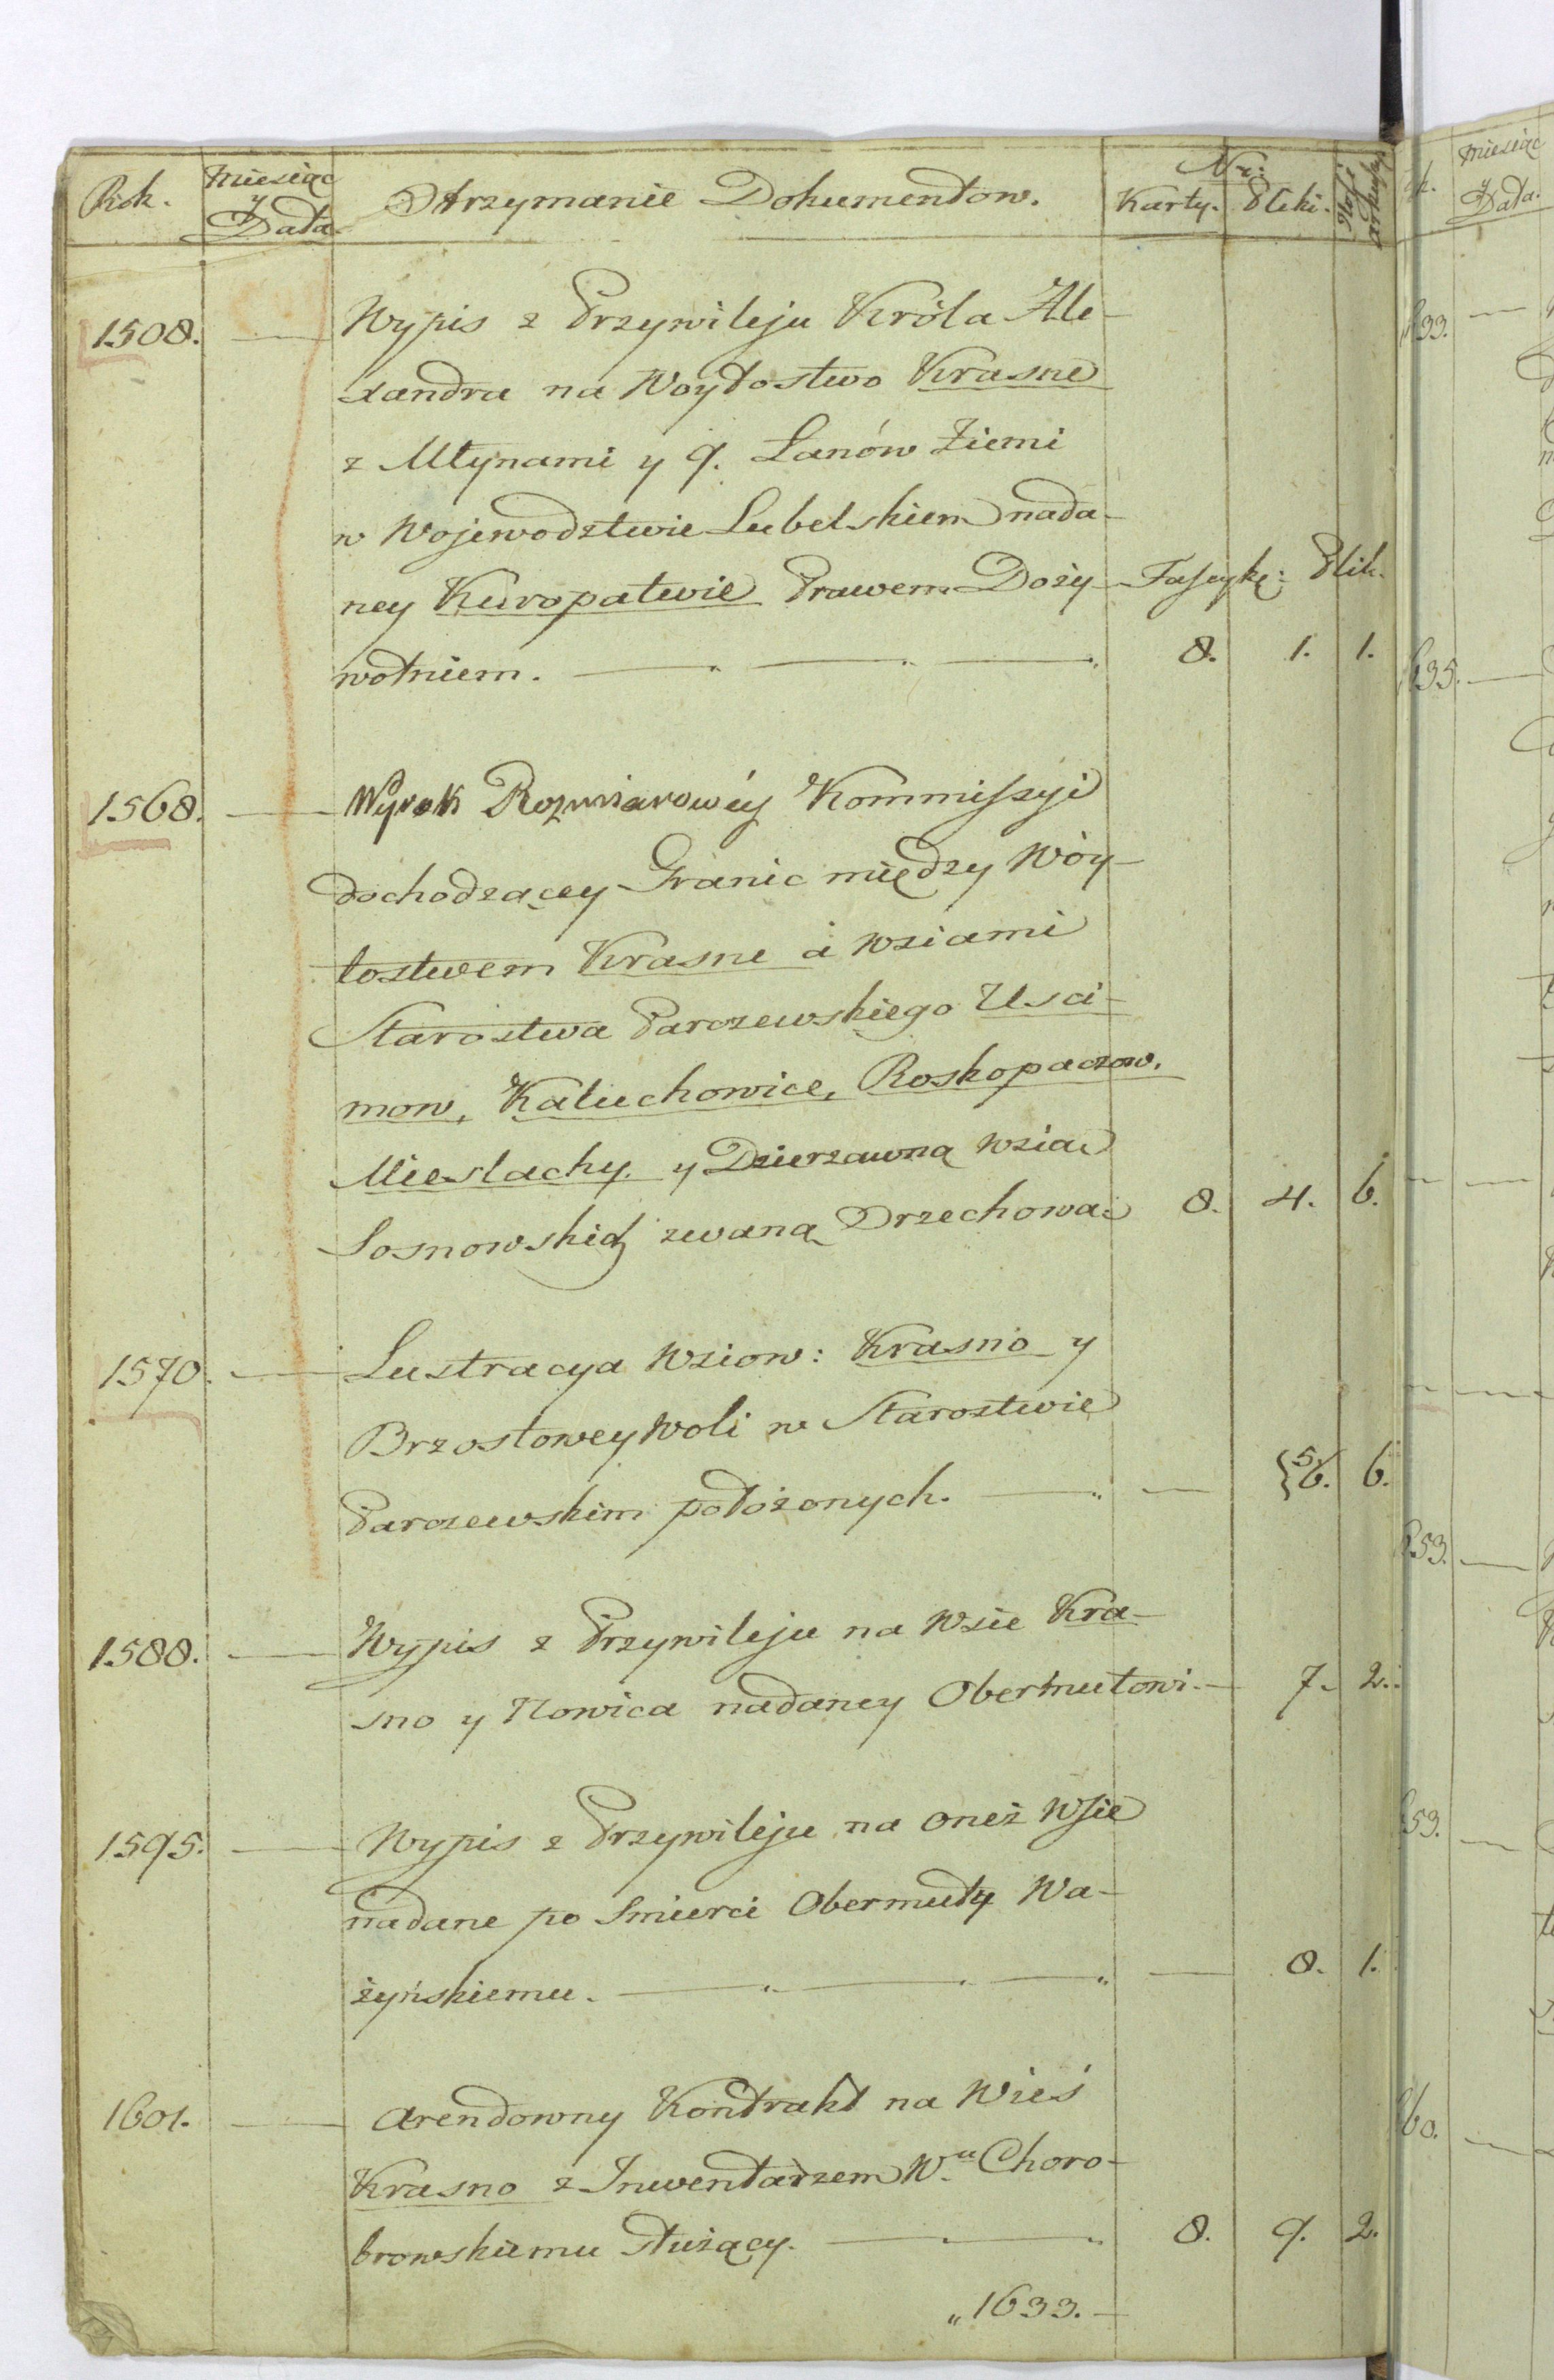 Rok. Miesiąc y Data. Otrzymanie Dokumentow. Nr: Karty. Pliki. Ilość arkuszy
1508. — Wypis z Przywileju Króla Ale-
xandra na Woytostwo Krasne
z Młynami y 9. Łanów Ziemi
w Wojewodztwie Lubelskiem nada-
ney Kuropatwie Prawem Doży- Fascyk: Plik.
wotniem. — 8. 1. 1.
1568. — Wyrok Rozmiarowéy Kommissyi
dochodzącey Granic między Wóy-
tostwem Krasne a Wsiami
Starostwa Parczewskiego Usci-
mow, Kaluchowice, Roskopaczow.
Mieslachy. y Dzierzawną Wsią
Sosnowskich zwaną Orzechowa: 8. 4. 6.
1570. — Lustracya Wsiow: Krasno y
Brzostowey Woli w Starostwie
Parczewskim położonych. — — {5. 6. 6.
1588. — Wypis z Przywileju na Wsie Kra-
sno y Nowica nadaney Obermutowi. — 7. 2.
1595. — Wypis z Przywileju na oneż Wsie
nadane po Smierci Obermuty Wa-
żyńskiemu. — — 8. 1.
1601. — Arendowny Kontrakt na Wieś
Krasno z Inwentarzem W.u Choro-
browskiemu służący. — 8. 9. 2.
„1633. —
k. Miesiąc y Data.
633. —
635. —
— —
— —
653. —
653. —
660. —